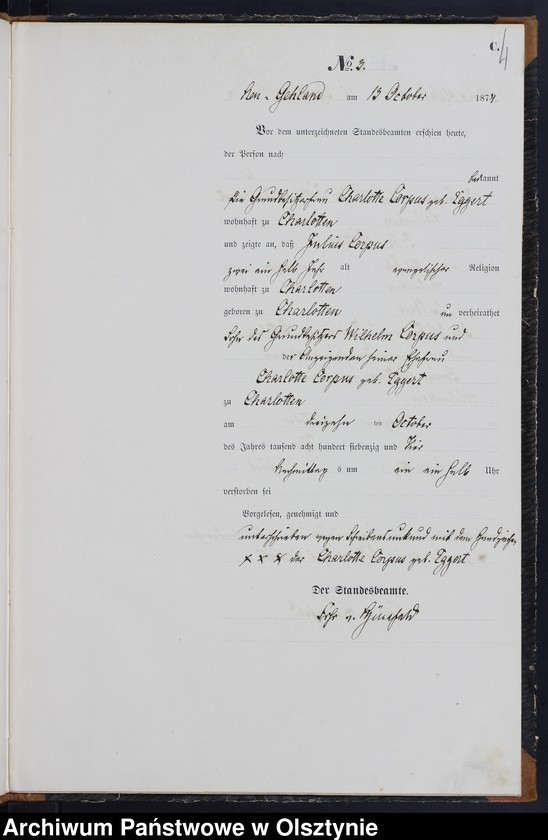 C.
4
No. 3.
Neu-Gehland am 13 October 1874
Vor dem unterzeichneten Standesbeamten erschien heute,
der Person nach
bekannt
die Grundbesitzerfrau Charlotte Corpus geb. Eggert
wohnhaft zu Charlotten
und zeigte an, daß Julius Corpus
zwei ein halb Jahr alt evangelischer Religion
wohnhaft zu Charlotten
geboren zu Charlotten un verheirathet
Sohn des Grundbesitzers Wilhelm Corpus und
der Anzeigenden seiner Ehefrau
Charlotte Corpus geb. Eggert
zu Charlotten
am dreizehn ten October
des Jahres tausend acht hundert siebenzig und vier
Nachmittag s um ein ein halb Uhr
verstorben sei
Vorgelesen, genehmigt und
unterschrieben wegen Schreibensunkund mit dem Handzeichen
x x x der Charlotte Corpus geb. Eggert
Der Standesbeamte.
Archiwum Państwowe w Olsztynie